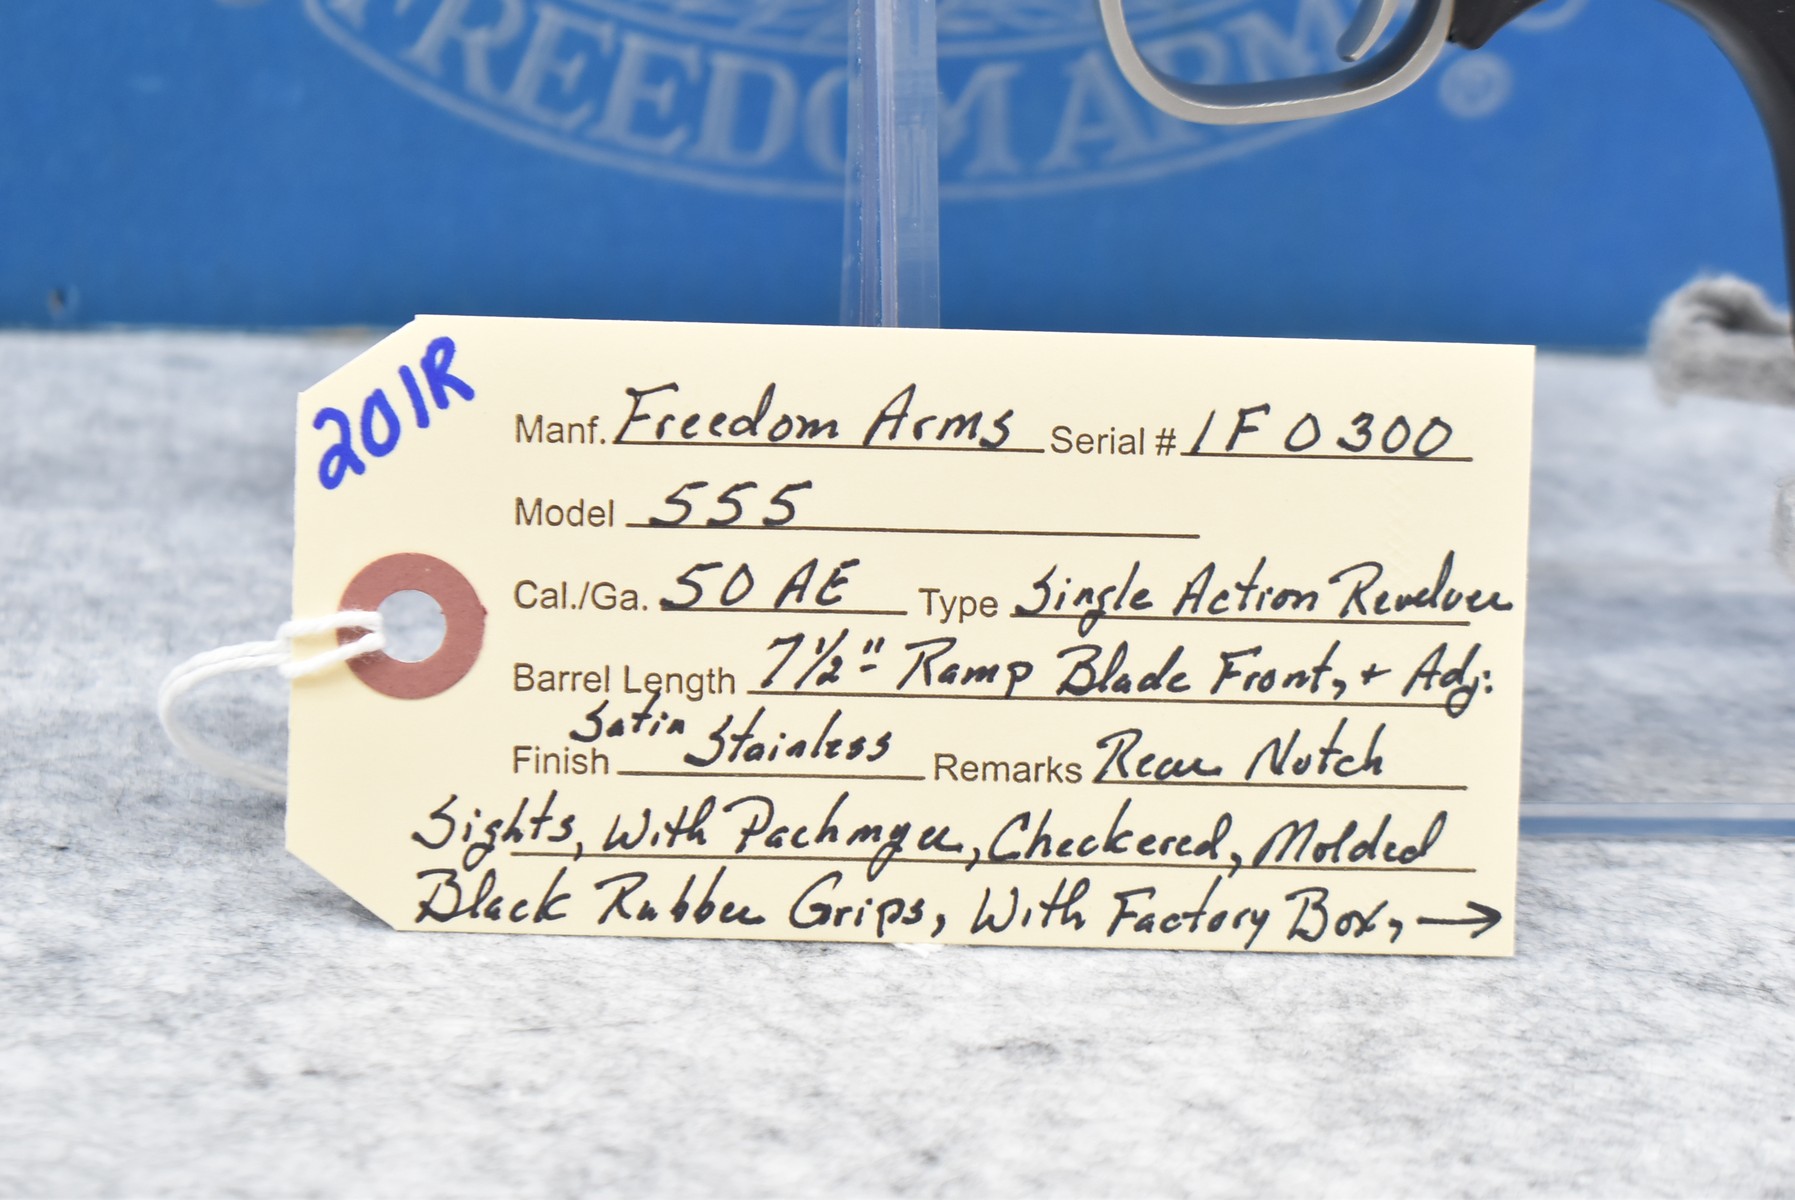 FREEDOM ARMS ®
201R
Manf. Freedom Arms Serial # 1F0300
Model 555
Cal./Ga. 50 AE Type Single Action Revolver
Barrel Length 7 1/2" Ramp Blade Front, + Adj.
Finish Satin Stainless Remarks Rear Notch
Sights, With Pachmyer, Checkered, Molded
Black Rubber Grips, With Factory Box, →